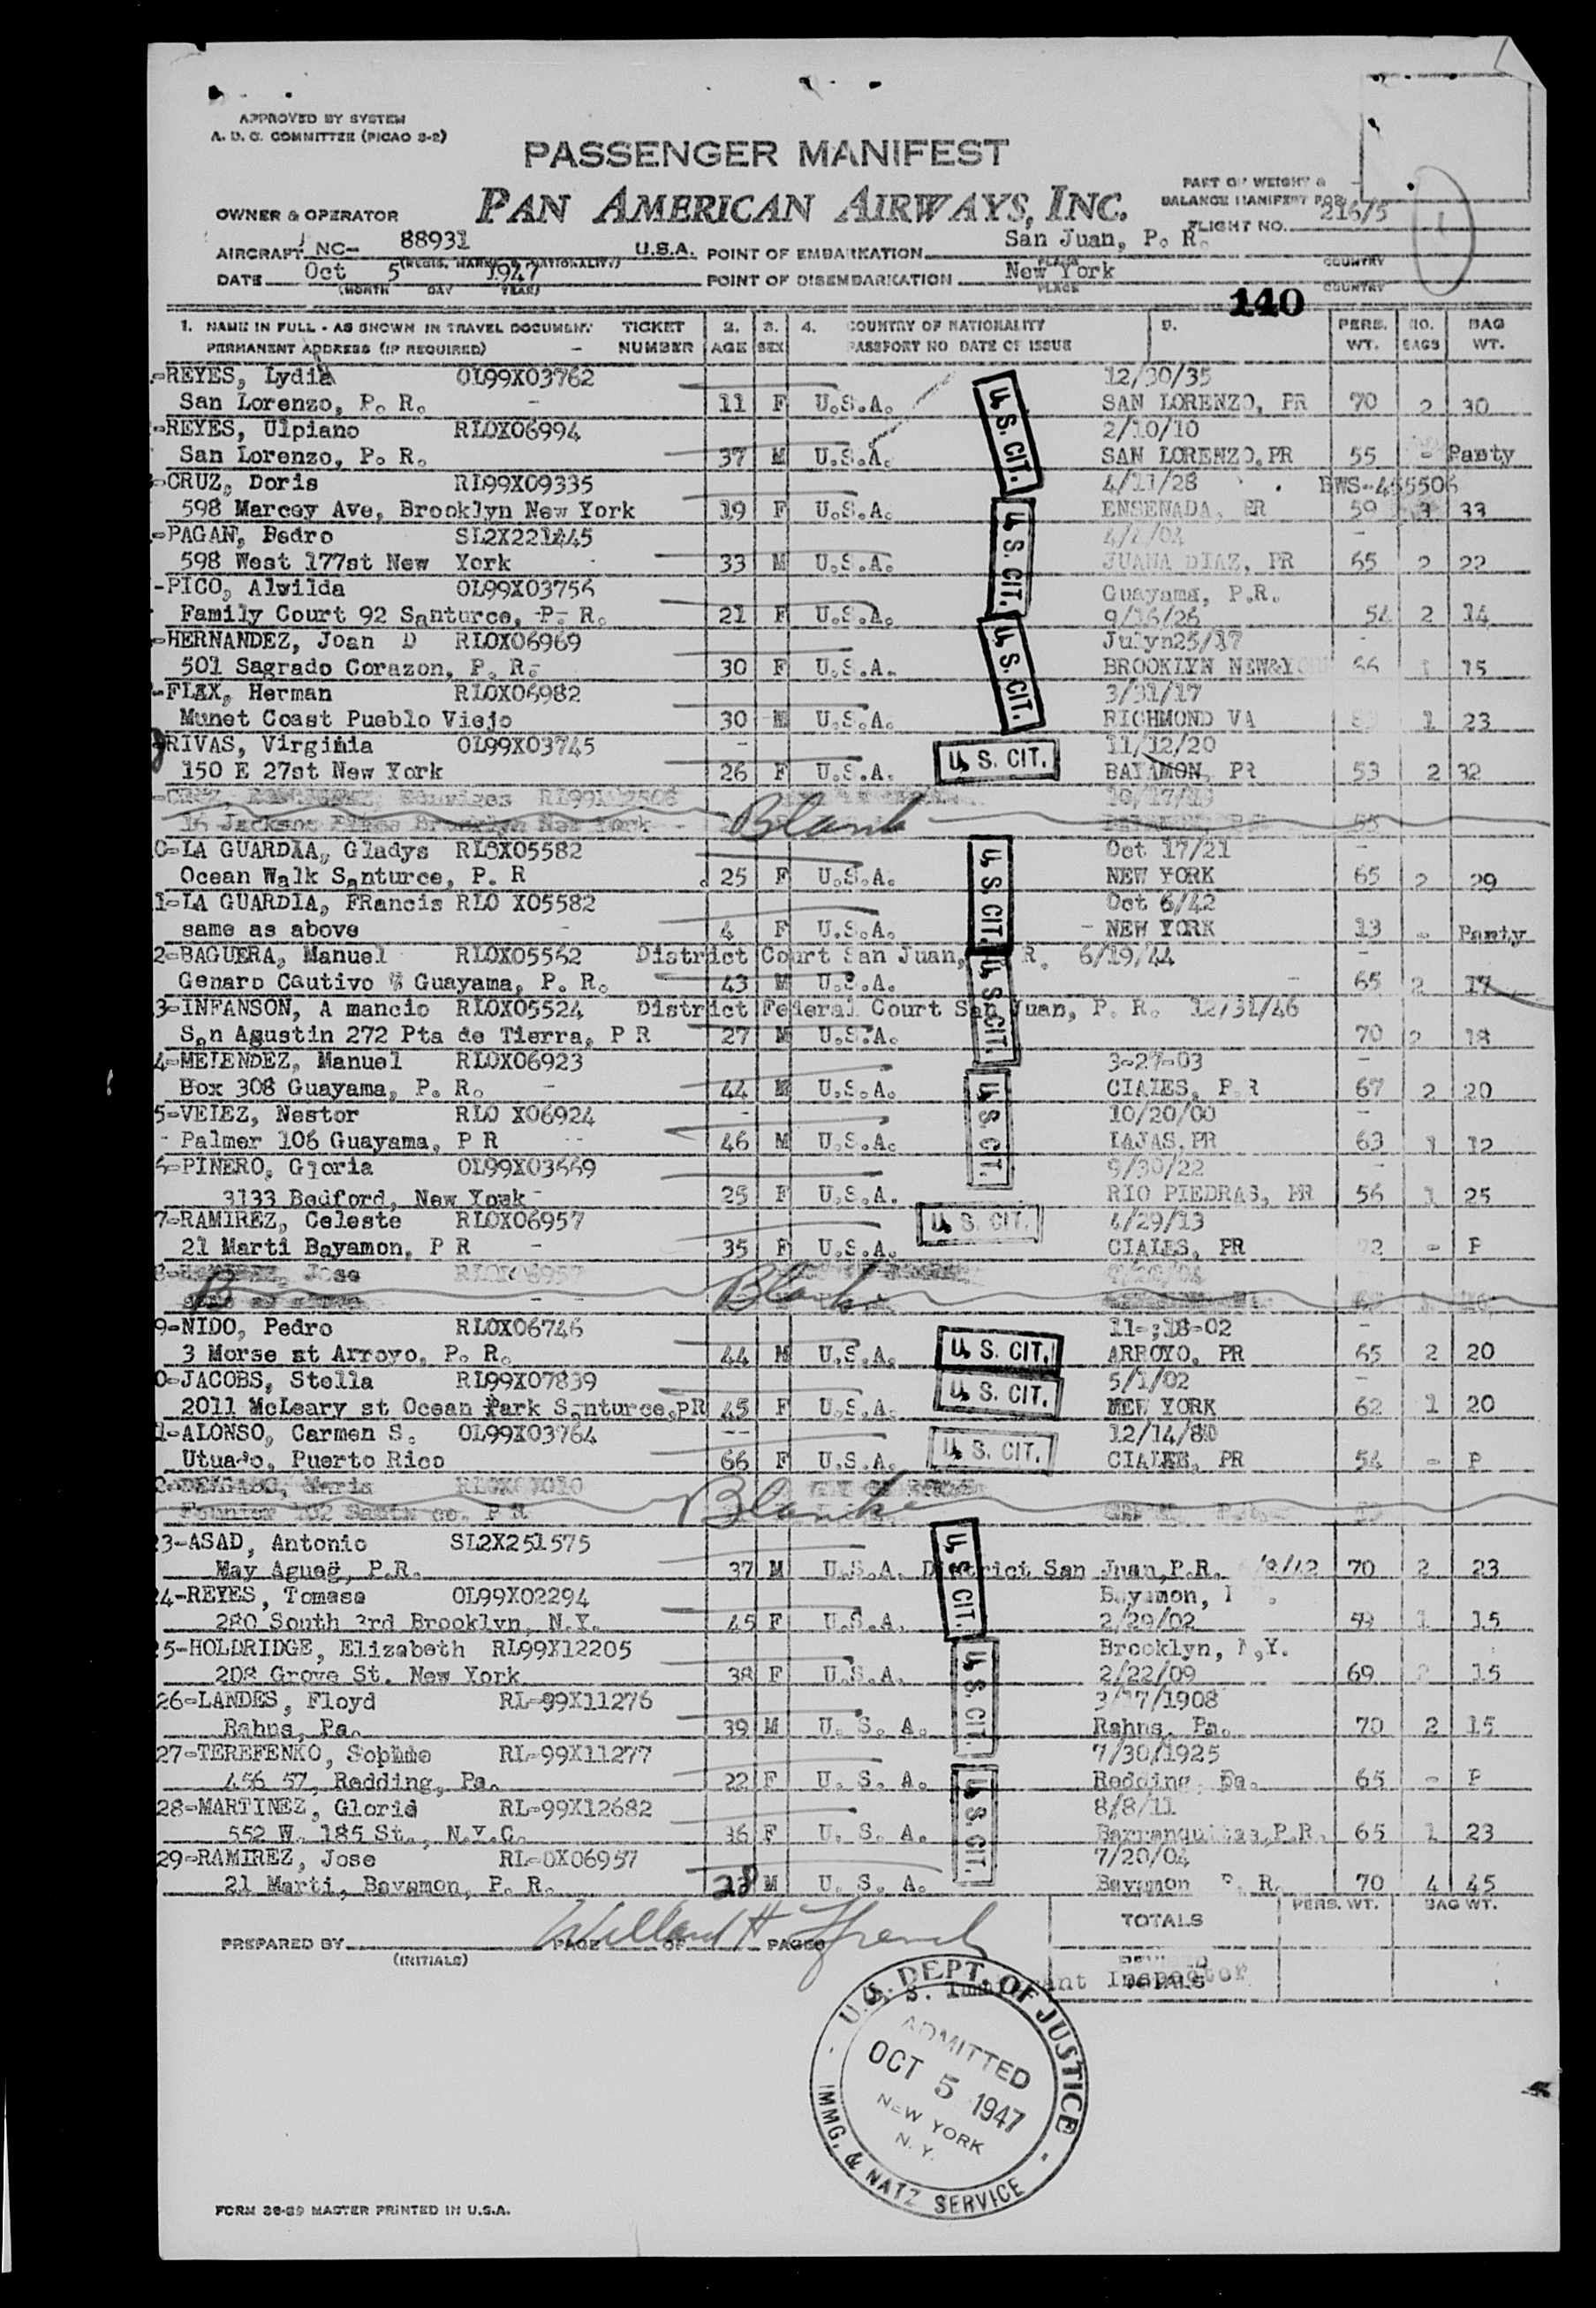 APPROVED BY SYSTEM
A. D. C. COMMITTEE (PICAO 3-2)
PASSENGER MANIFEST
PART OF WEIGHT &
BALANCE MANIFEST FOR
OWNER & OPERATOR PAN AMERICAN AIRWAYS, INC.
FLIGHT NO. 216/5
AIRCRAFT NC- 88931 U.S.A. POINT OF EMBARKATION San Juan, P. R.
(REGIS. MARKS & NATIONALITY) PLACE COUNTRY
DATE Oct 5 1947 POINT OF DISEMBARKATION New York
(MONTH DAY YEAR) PLACE COUNTRY
140
1. NAME IN FULL - AS SHOWN IN TRAVEL DOCUMENT TICKET 2. 3. 4. COUNTRY OF NATIONALITY 5. PERS. NO. BAG
PERMANENT ADDRESS (IF REQUIRED) - NUMBER AGE SEX PASSPORT NO DATE OF ISSUE WT. BAGS WT.
-REYES, Lydia OL99X03762 12/30/35
San Lorenzo, P. R. - 11 F U.S.A. SAN LORENZO, PR 70 2 30
-REYES, Ulpiano RLOX06994 2/10/10
San Lorenzo, P. R. 37 M U.S.A. SAN LORENZO, PR 55 - Panty
U.S. CIT.
-CRUZ, Doris RL99X09335 4/11/28
598 Marcey Ave, Brooklyn New York 19 F U.S.A. ENSENADA, PR 59 3 33
-PAGAN, Pedro SL2X221445
598 West 177st New York 33 M U.S.A. JUANA DIAZ, PR 65 2 22
U.S. CIT.
-PICO, Alvilda OL99X03756 Guayama, P.R.
Family Court 92 Santurce, P. R. 21 F U.S.A. 9/16/26 54 2 14
-HERNANDEZ, Joan D RLOX06969
501 Sagrado Corazon, P. R. 30 F U.S.A. BROOKLYN 66 1 15
U.S. CIT.
-FLAX, Herman RLOX06982 3/31/17
Munet Coast Pueblo Viejo 30 M U.S.A. RICHMOND VA 1 23
RIVAS, Virginia OL99X03745 11/12/20
150 E 27st New York 26 F U.S.A. U.S. CIT. BAYAMON, PR 53 2 32
Blank
0-LA GUARDIA, Gladys RLOX05582 Oct 17/21
Ocean Walk Santurce, P. R 25 F U.S.A. NEW YORK 65 2 29
1-LA GUARDIA, FRancis RLO X05582 Oct 6/42
same as above 4 F U.S.A. - NEW YORK 13 - Panty
U.S. CIT.
2-BAGUERA, Manuel RLOX05562 District Court San Juan, R. 6/19/44
Genaro Cautivo # Guayama, P. R. 43 M U.S.A. 65 2 17
3-INFANSON, A mancio RLOX05524 District Federal Court San Juan, P. R. 12/31/46
San Agustin 272 Pta de Tierra, P R 27 M U.S.A. 70 2 18
U.S. CIT.
4-MELENDEZ, Manuel RLOX06923 3-27-03
Box 308 Guayama, P. R. - 44 M U.S.A. CIALES, P.R 67 2 20
5-VELEZ, Nestor RLO X06924 10/20/00
- Palmer 106 Guayama, P R 46 M U.S.A. LAJAS. PR 63 1 12
U.S. CIT.
6-PINERO, Gloria OL99X03669 9/30/22
3133 Bedford, New York 25 F U.S.A. RIO PIEDRAS, PR 56 1 25
7-RAMIREZ, Celeste RLOX06957 U.S. CIT. 4/29/13
21 Marti Bayamon, P R - 35 F U.S.A. CIALES, PR 72 - P
Jose
B Blank
9-NIDO, Pedro RLOX06746 11-;18-02
3 Morse st Arroyo, P. R. 44 M U.S.A. U.S. CIT. ARROYO, PR 65 2 20
0-JACOBS, Stella RL99X07839 5/1/02
2011 McLeary st Ocean Park Santurce,PR 45 F U.S.A. U.S. CIT. NEW YORK 62 1 20
1-ALONSO, Carmen S. OL99X03764 -- 12/14/80
Utuado, Puerto Rico 66 F U.S.A. U.S. CIT. CIALES, PR 54 - P
Blank
23-ASAD, Antonio SL2X251575
May Ague, P.R. 37 M U.S.A. District San Juan,P.R. 70 2 23
4-REYES, Tomasa OL99X02294 Bayamon,
280 South 3rd Brooklyn, N.Y. 45 F U.S.A. 2/29/02 1 15
U.S. CIT.
5-HOLDRIDGE, Elizabeth RL99X12205 Brooklyn, N,Y.
208 Grove St. New York 38 F U.S.A. 2/22/09 69 15
26-LANDES, Floyd RL-99X11276 3/17/1908
Rahns, Pa. 39 M U. S. A. Rahns, Pa. 70 2 15
U.S. CIT.
27-TEREFENKO, RL-99X11277 7/30/1925
456 57, Redding, Pa. 22 F U. S. A. Redding, Pa. 65 - P
28-MARTINEZ, Gloria RL-99X12682 8/8/11
552 W. 185 St., N.Y.C. 36 F U. S. A. Barranquitas,P.R. 65 1 23
U.S. CIT.
29-RAMIREZ, Jose RL-OX06957 7/20/04
21 Marti, Bayamon, P. R. M U. S. A. Bayamon P. R. 70 4 45
PERS. WT. BAG WT.
TOTALS
PREPARED BY Willard H French PAGE OF PAGES
(INITIALS)
TOTALS
U. S. Immigrant Inspector
U.S. DEPT. OF JUSTICE
ADMITTED
OCT 5 1947
NEW YORK
N. Y.
IMMG. & NATZ SERVICE
FORM 36-89 MASTER PRINTED IN U.S.A.